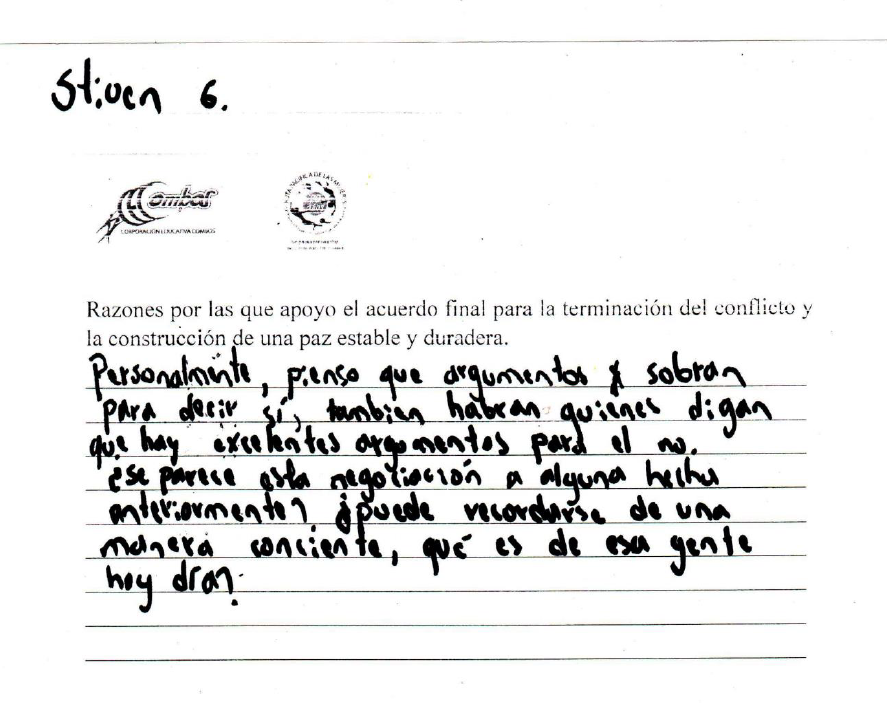 Stiven G.
Combos
CORPORACIÓN EDUCATIVA COMBOS
RUTA PACÍFICA DE LAS MUJERES
Razones por las que apoyo el acuerdo final para la terminación del conflicto y
la construcción de una paz estable y duradera.
Personalmente, pienso que argumentos sobran
para decir sí, tambien habran quienes digan
que hay excelentes argumentos para el no.
¿se parece esta negociación a alguna hecha
anteriormente? ¿puede recordarse de una
manera conciente, qué es de esa gente
hoy día?